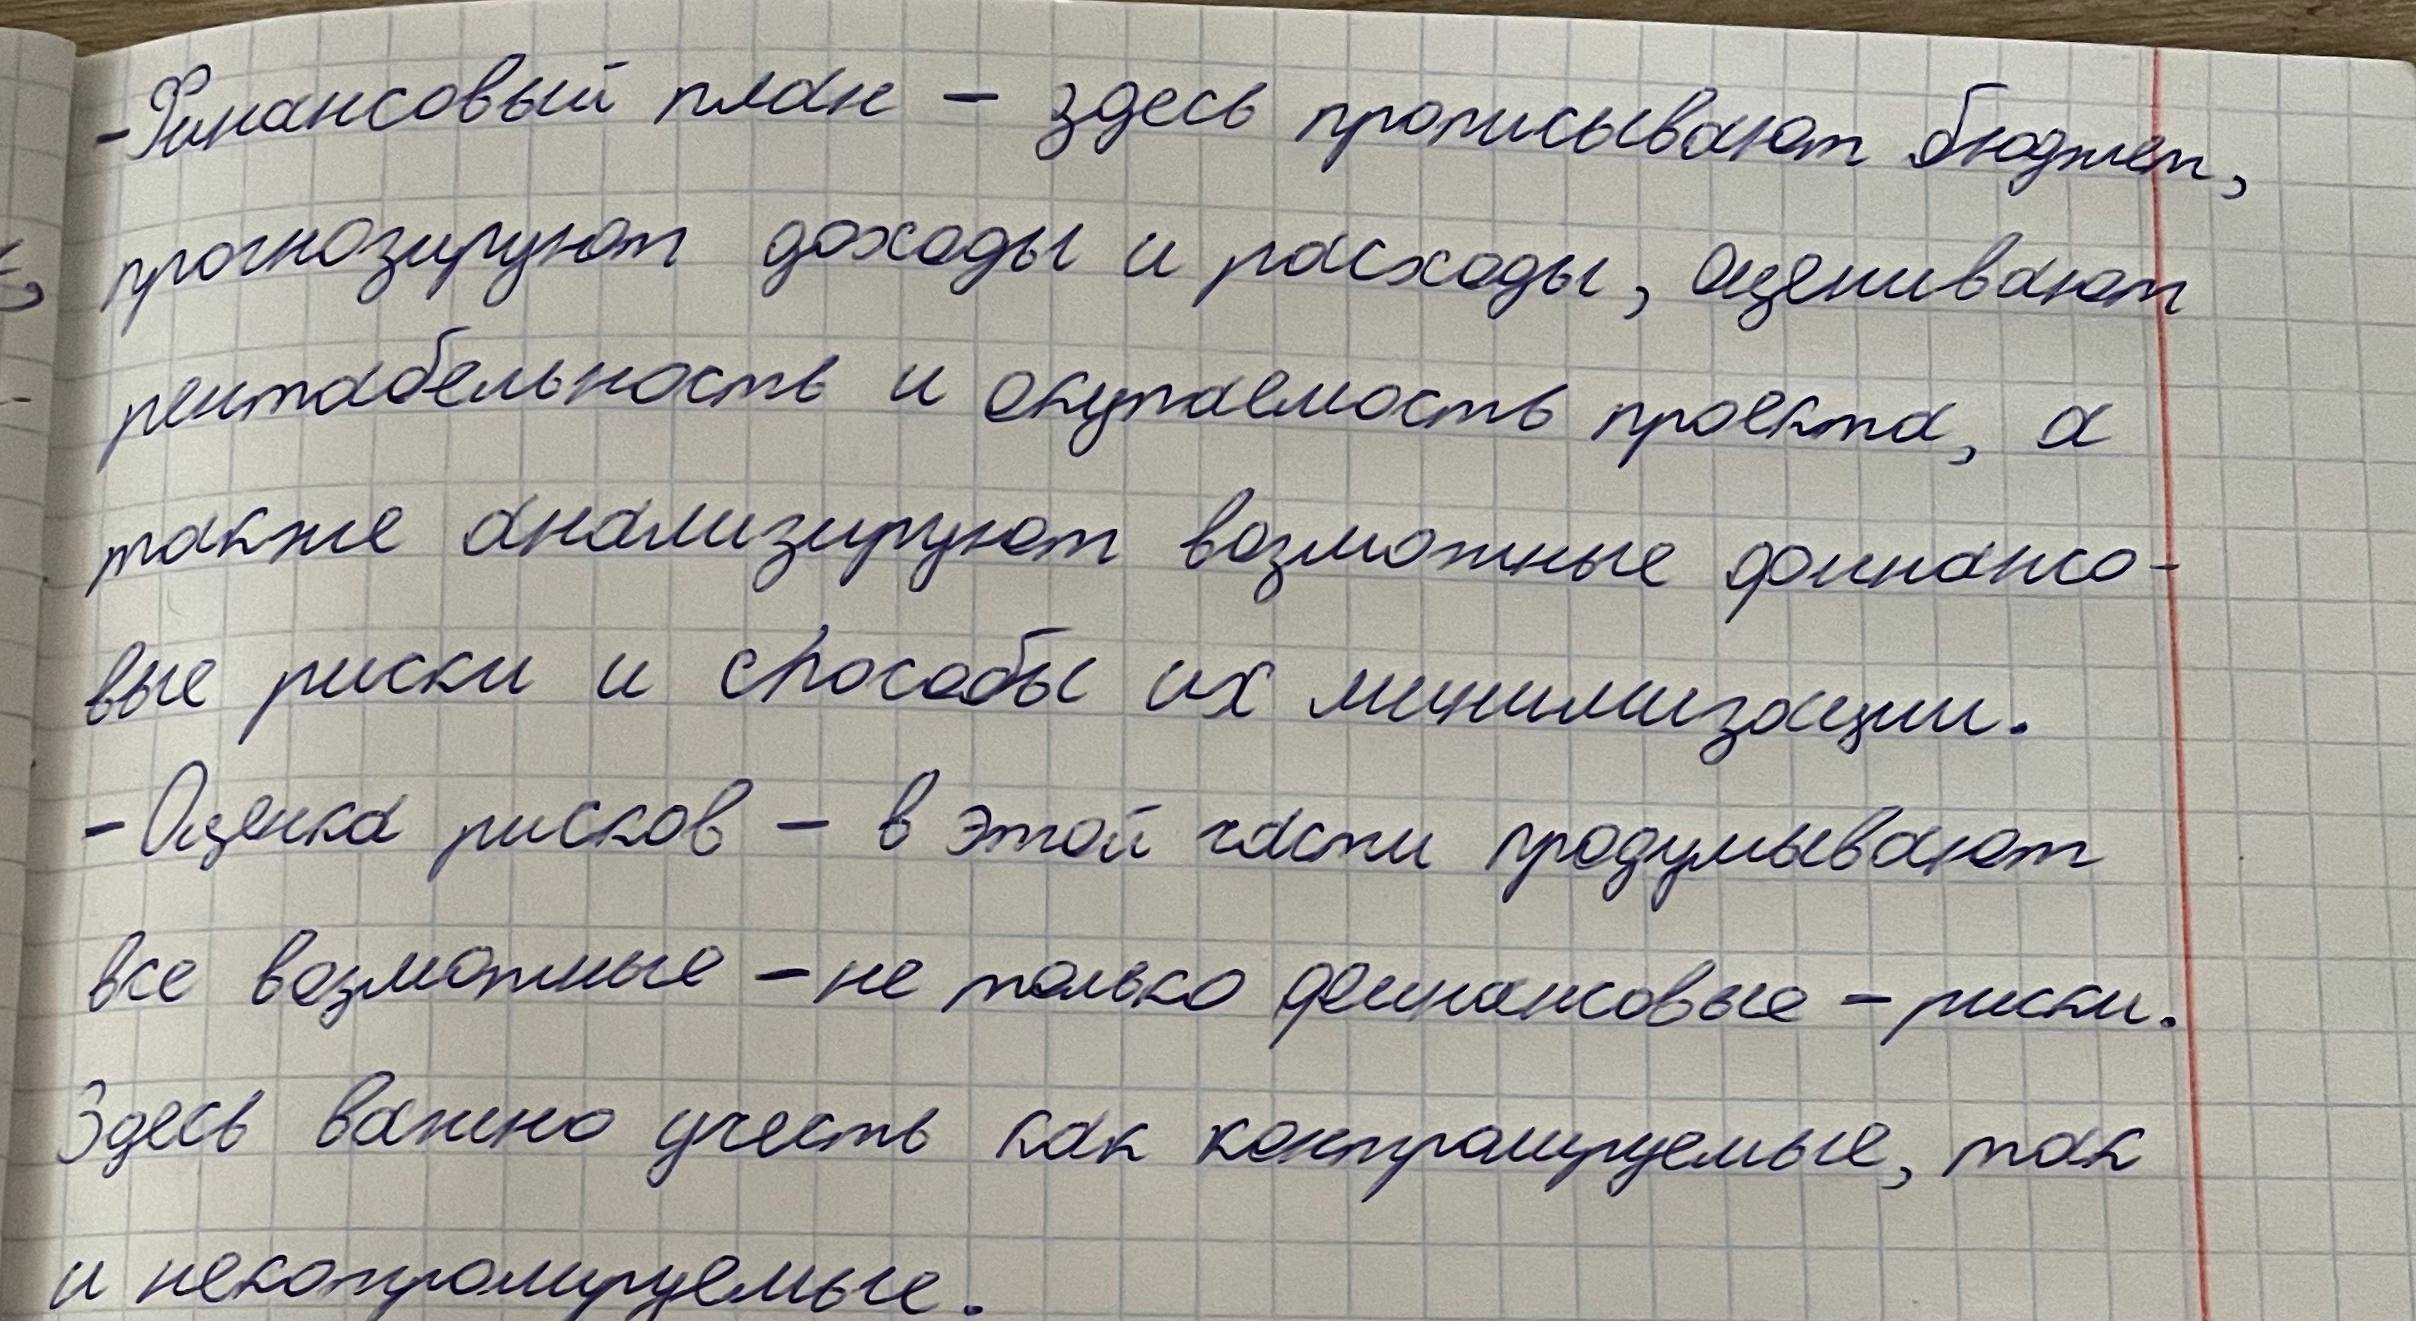 -Финансовый план – здесь прописывают бюджет,
прогнозируют доходы и расходы, оценивают
рентабельность и окупаемость проекта, а
также анализируют возможные финансо-
вые риски и способы их минимизации.
-Оценка рисков – в этой части продумывают
все возможные – не только финансовые – риски.
Здесь важно учесть как контролируемые, так
и неконтролируемые.